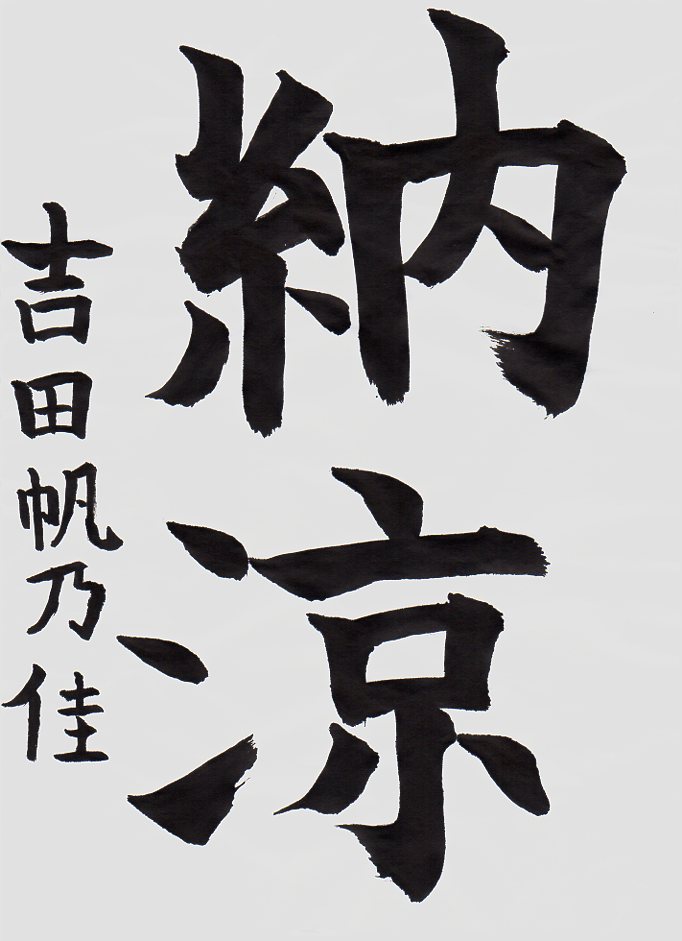 納涼
吉田帆乃佳